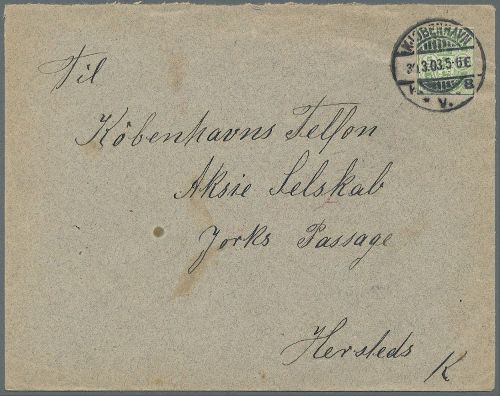 Til
KJØBENHAVN
3.03.5-6E
8
* V. *
Köbenhavns Telfon
Aksie Selskab
Jorks Passage
Hersteds
K